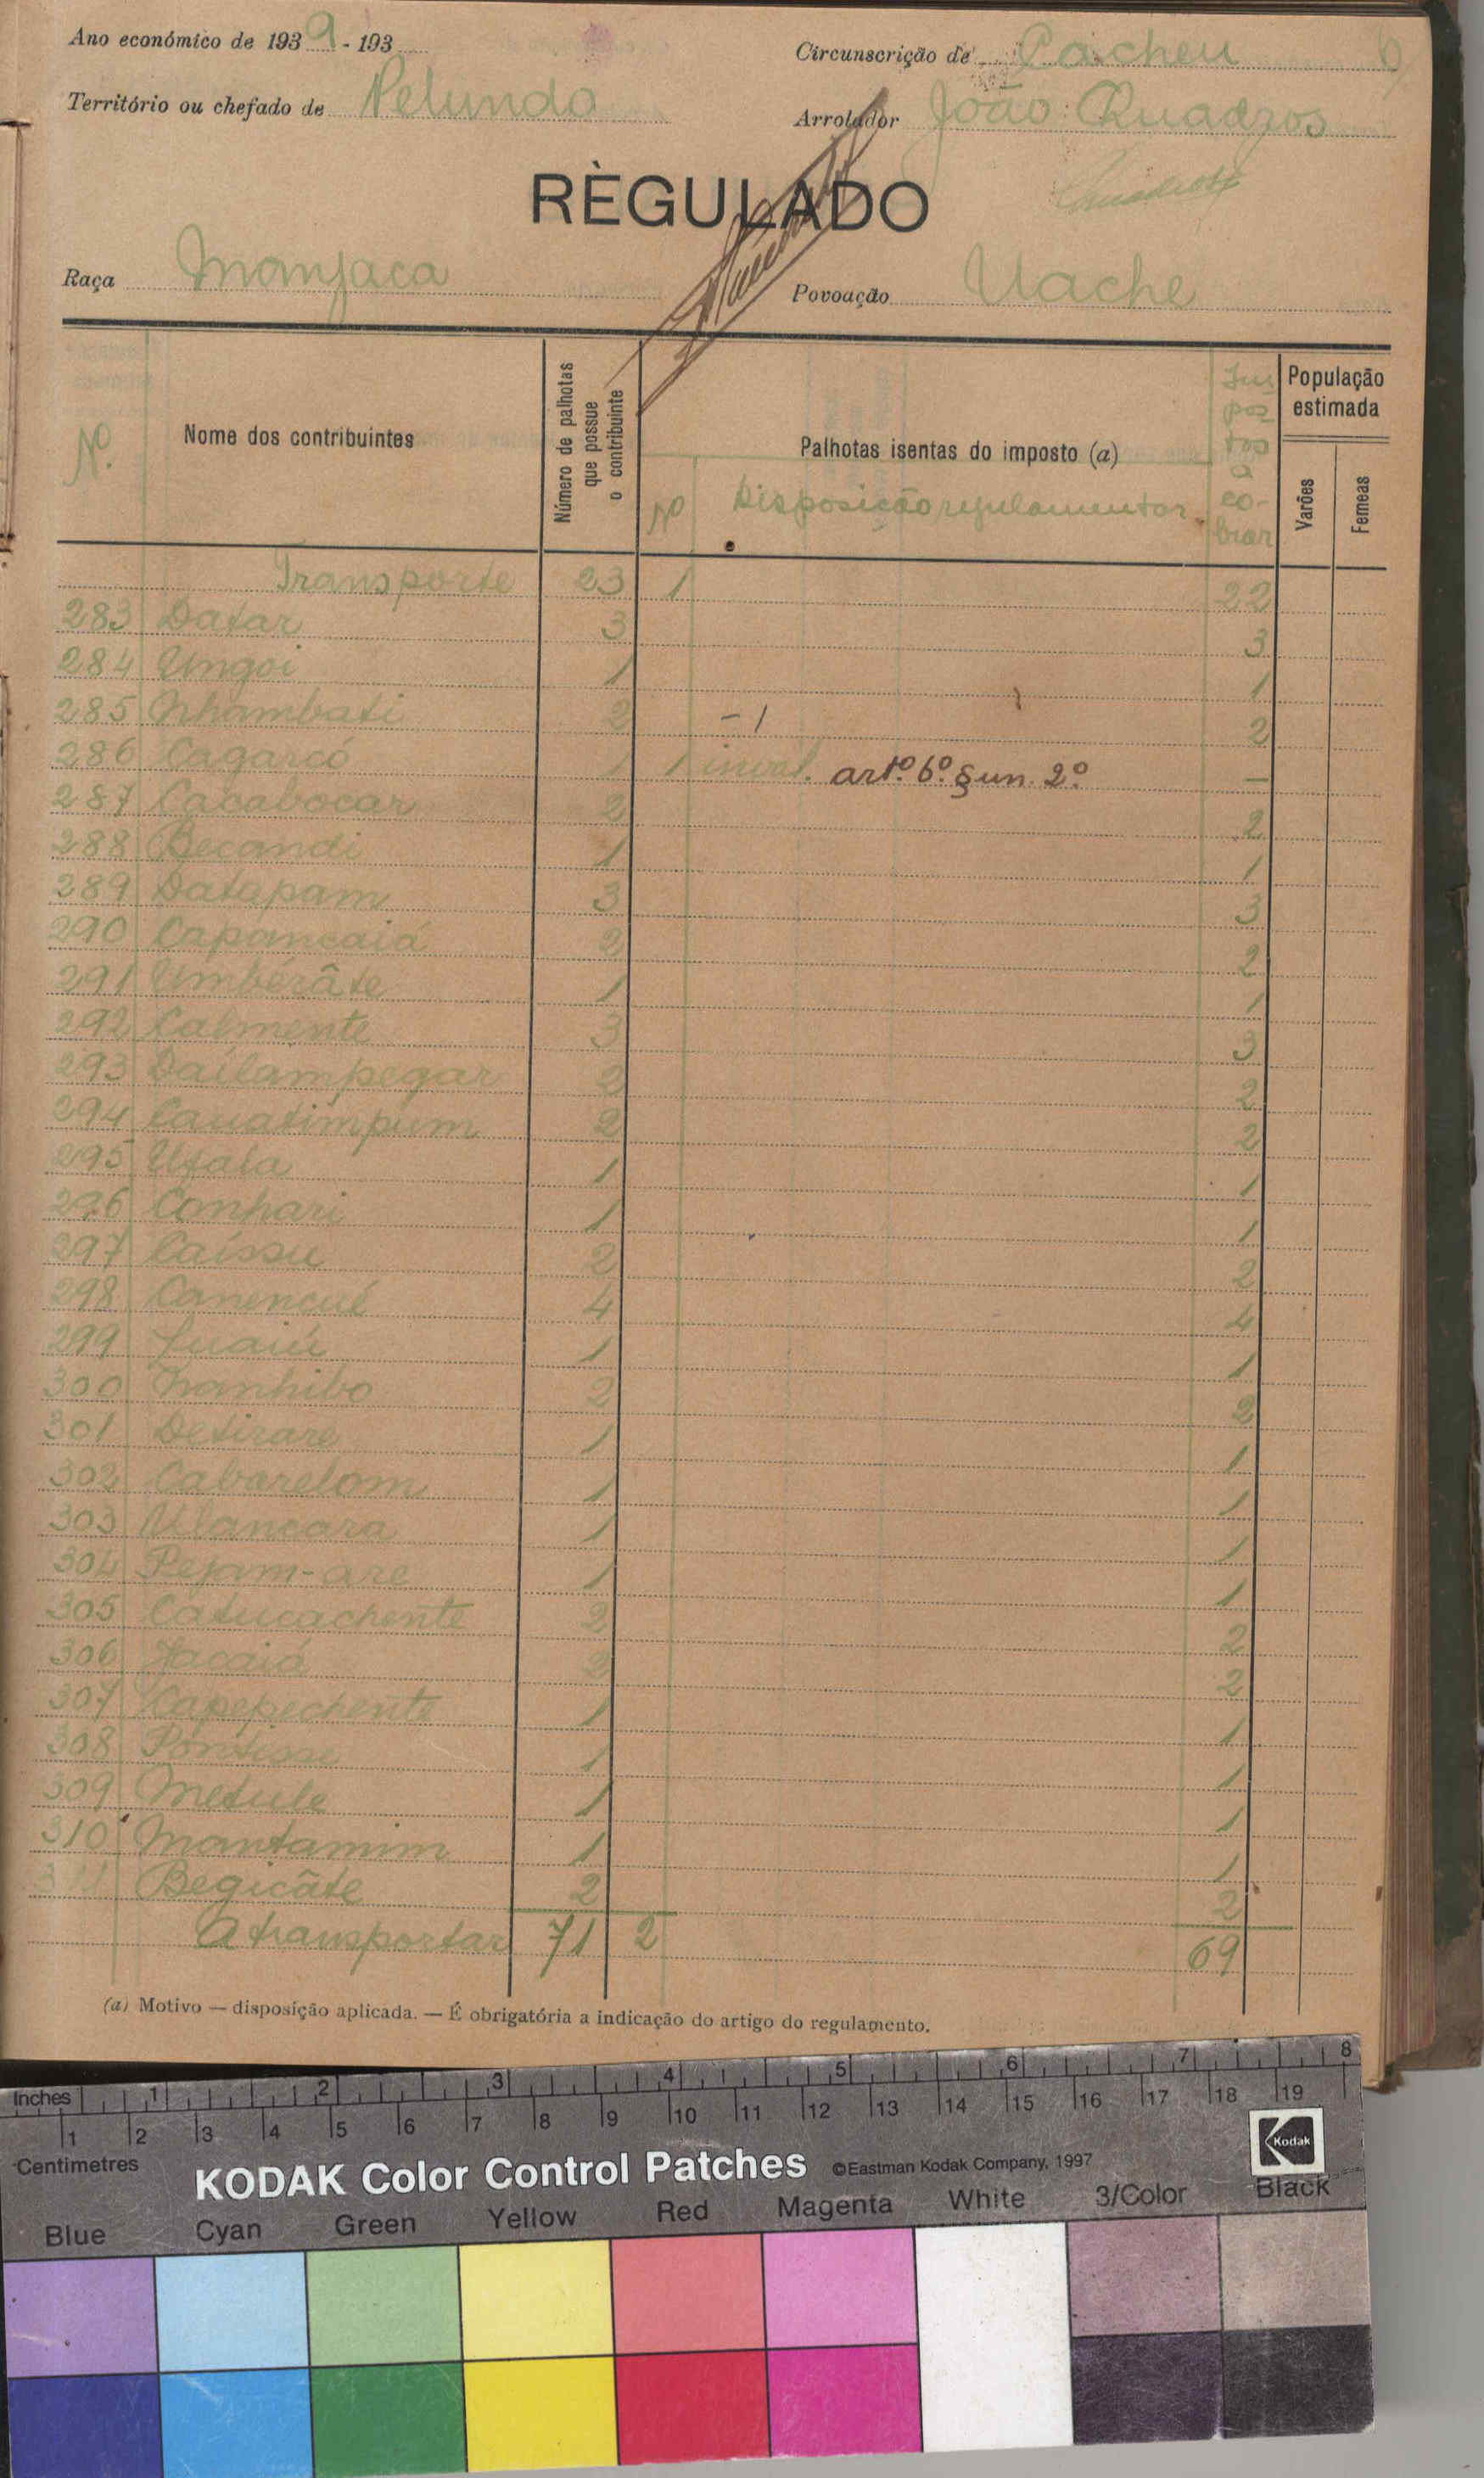 Ano económico de 1939 - 193
Circunscrição de Cacheu
Território ou chefado de Pelundo
Arrolador João Quadros
RÈGULADO
Raça Manjaca
Povoação Uache
Nº
Nome dos contribuintes
Número de palhotas que possue o contribuinte
Palhotas isentas do imposto (a)
Nº Disposição regulamentar
Impostos a cobrar
População estimada
Varões
Femeas
Transporte 23 1 22
283 Datar 3 3
284 Ungoi 1 1
285 Nhambati 2 -1 2
286 Cagarcó 1 1 art.º 6.º § un. 2.º —
287 Cacabocar 2 2
288 Becandi 1 1
289 Datapam 3 3
290 Capancaiá 2 2
291 Umbérâte 1 1
292 Calmente 3 3
293 Daílampegar 2 2
294 Cauatimpum 2 2
295 Ufala 1 1
296 Conhari 1 1
297 Caíssu 2 2
298 Canencué 4 4
299 1 1
300 2 2
301 Detirare 1 1
302 Cabarelom 1 1
303 1 1
304 Pejam-are 1 1
305 Catucachente 2 2
306 2 2
307 Capepechente 1 1
308 1 1
309 Metule 1 1
310 Mantamim 1 1
311 Begicâte 2 2
A transportar 71 2 69
(a) Motivo — disposição aplicada. — É obrigatória a indicação do artigo do regulamento.
Inches 1 2 3 4 5 6 7 8
1 2 3 4 5 6 7 8 9 10 11 12 13 14 15 16 17 18 19
Centimetres
KODAK Color Control Patches ©Eastman Kodak Company, 1997 Kodak
Blue Cyan Green Yellow Red Magenta White 3/Color Black